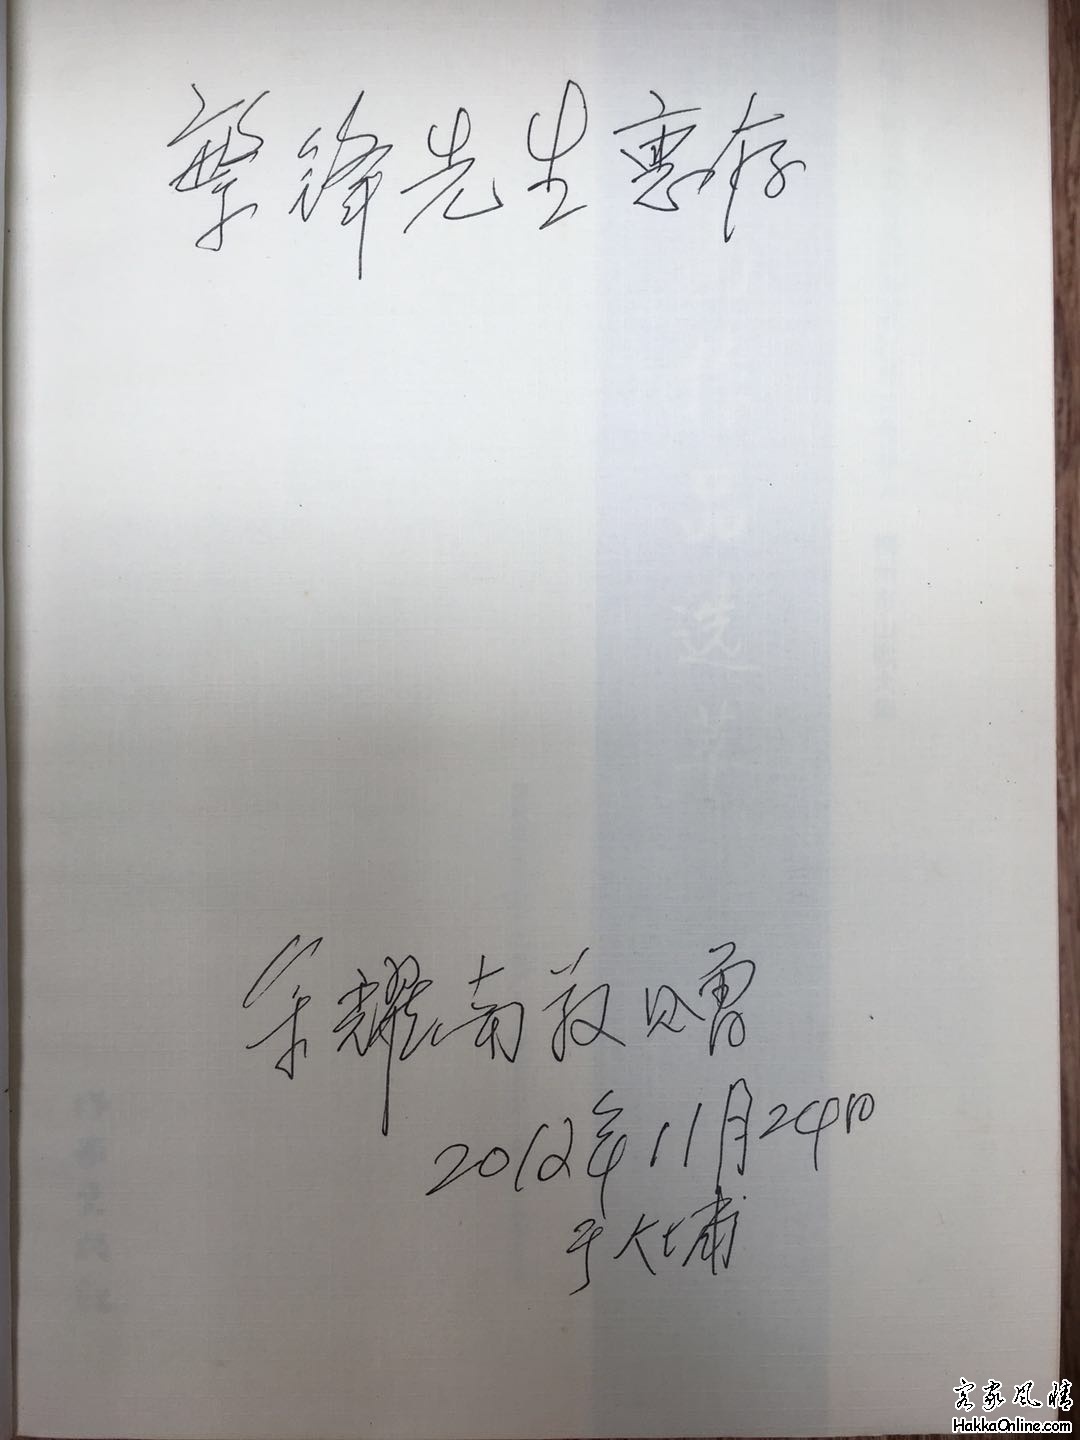 锋先生惠存
余耀南敬赠
2012年11月24日
于大埔
品选萃
客家风情
HakkaOnline.com